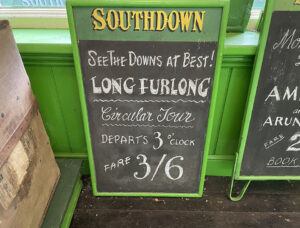 SOUTHDOWN
SEE THE DOWNS AT BEST!
LONG FURLONG
Circular Tour
DEPARTS 3 O'CLOCK
FARE 3/6
AM
ARUN
FARE
BOOK